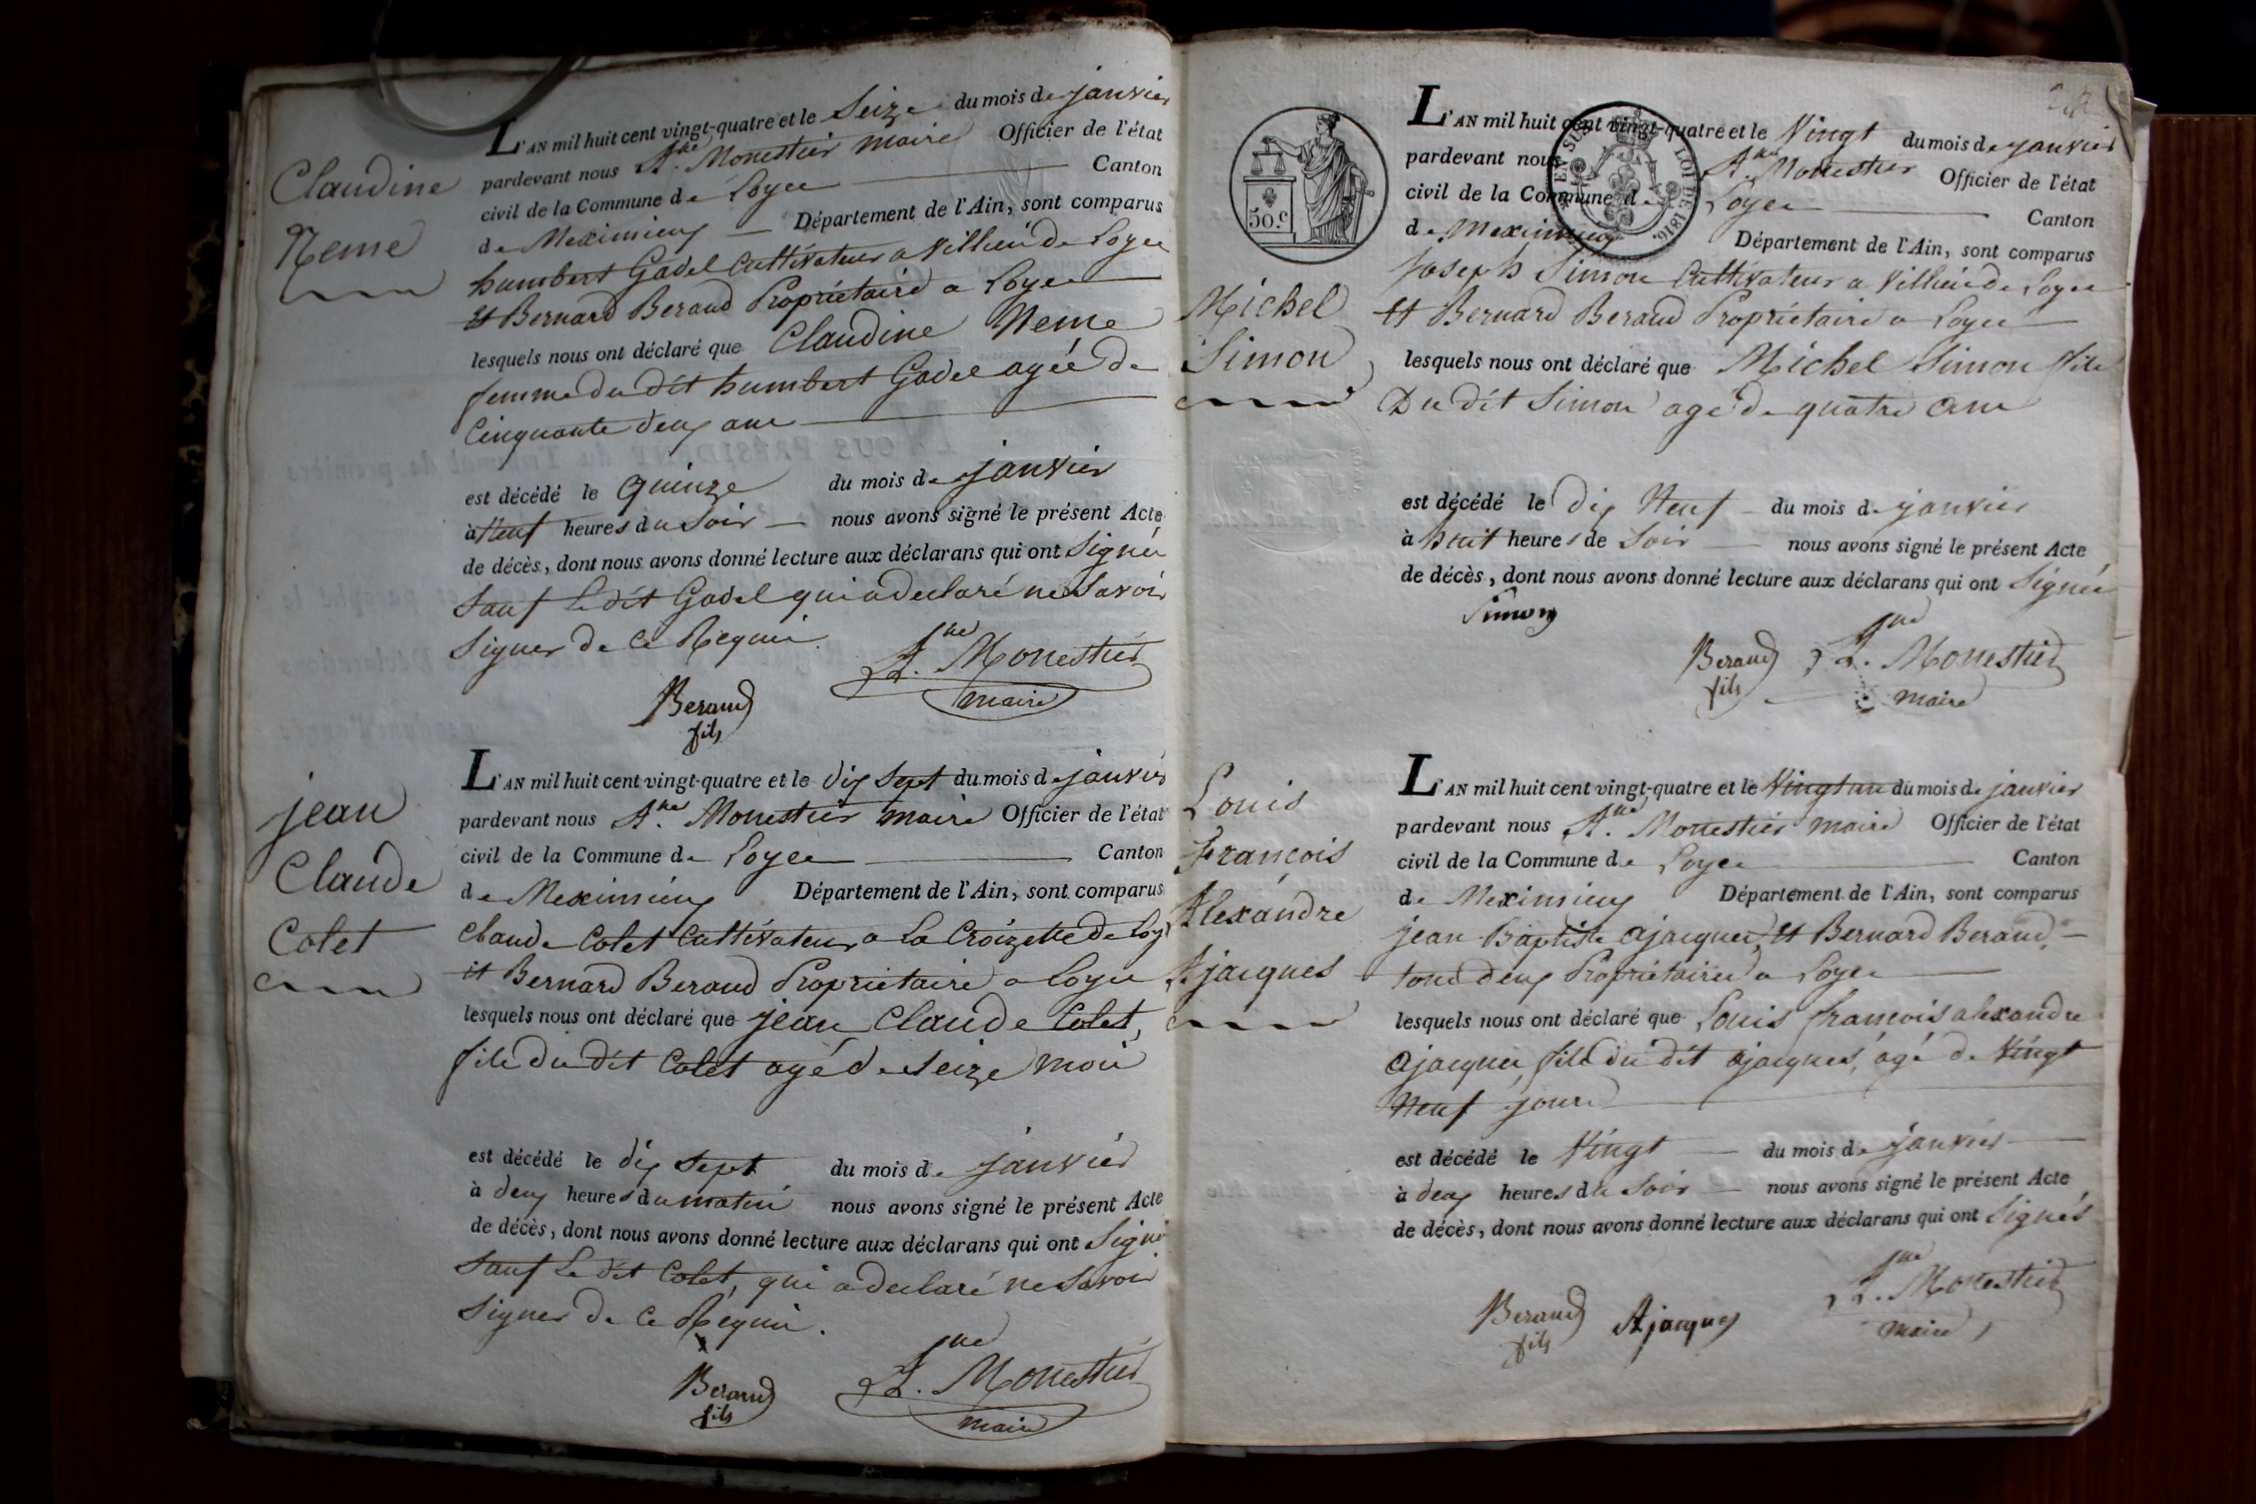 Claudine
Neme
L'AN mil huit cent vingt-quatre et le Seize du mois de janvier
pardevant nous A.ne Monestier maire Officier de l'état
civil de la Commune de Loyes Canton
de Meximieux Département de l'Ain, sont comparus
humbert Godel cultivateur a Villieu de Loyes
et Bernard Beraud Propriétaire a Loyes
lesquels nous ont déclaré que Claudine Neme
femme du dit humbert Godel agée de
Cinquante deux ans
est décédé le quinze du mois de janvier
à Neuf heures du Soir nous avons signé le présent Acte
de décès, dont nous avons donné lecture aux déclarans qui ont Signés
Sauf Le dit Godel qui a declaré ne Savoir
Signer de ce Requis.
A.ne Monestier
maire
Beraud
fils
jean
Claude
Colet
L'AN mil huit cent vingt-quatre et le dix Sept du mois de janvier
pardevant nous A.ne Monestier maire Officier de l'état
civil de la Commune de Loyes Canton
de Meximieux Département de l'Ain, sont comparus
Claude Colet Cultivateur a La Croizette de Loy
et Bernard Beraud Propriétaire a Loyes
lesquels nous ont déclaré que jean Claude Colet,
fils du dit Colet agé de seize mois
est décédé le dix Sept du mois de janvier
à deux heures du matin nous avons signé le présent Acte
de décès, dont nous avons donné lecture aux déclarans qui ont Signé
Sauf Le dit Colet, qui a declaré ne Savoir
Signer de ce Réquis.
Beraud
fils
A.ne Monestier
maire
50.c
EN SUS
LOI DE 1816.
Michel
Simon
L'AN mil huit cent vingt-quatre et le Vingt du mois de janvier
pardevant nous A.ne Monestier Officier de l'état
civil de la Commune de Loyes Canton
de Meximieux Département de l'Ain, sont comparus
Joseph Simon Cultivateur a Villieu de Loyes
et Bernard Beraud Propriétaire a Loyes
lesquels nous ont déclaré que Michel Simon fils
Du dit Simon agé de quatre ans
est décédé le dix Neuf du mois de janvier
à huit heures de Soir nous avons signé le présent Acte
de décès, dont nous avons donné lecture aux déclarans qui ont Signés
Simon
Beraud
fils
A.ne Monestier
maire
Louis
François
Alexandre
Ajacques
L'AN mil huit cent vingt-quatre et le Vingt un du mois de janvier
pardevant nous A.ne Monestier maire Officier de l'état
civil de la Commune de Loyes Canton
de Meximieux Département de l'Ain, sont comparus
jean Baptiste ajacques, et Bernard Beraud,
tous deux Propriétaires a Loyes
lesquels nous ont déclaré que Louis françois alexandre
ajacques, fils du dit ajacques, agé de Vingt
Neuf jours
est décédé le Vingt du mois de janvier
à deux heures du Soir nous avons signé le présent Acte
de décès, dont nous avons donné lecture aux déclarans qui ont Signés
Beraud
fils
Ajacques
A.ne Monestier
maire